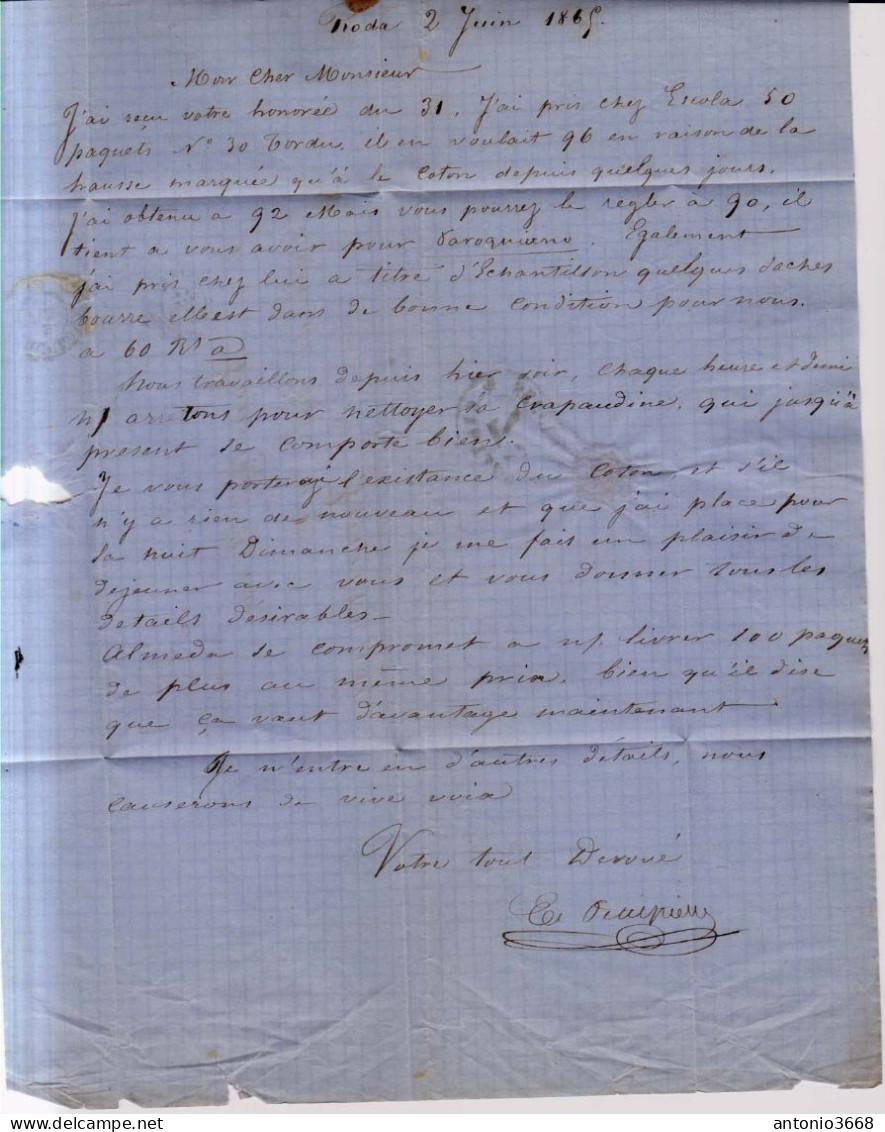 Roda 2 Juin 1865.
Mon Cher Monsieur
J'ai reçu votre honorée du 31. J'ai pris chez Escola 50
paquets N° 30 Tordu. il en voulait 96 en raison de la
hausse marquée qu'à le Coton depuis quelques jours.
J'ai obtenu a 92 Mais vous pourrez le regler à 90, il
tient a vous avoir pour . Egalement
j'ai pris chez lui a titre d'Echantillon quelques
bourre elle est dans de bonne condition pour nous.
a 60
Nous travaillons depuis hier soir, chaque heure et demi
n/ arretons pour nettoyer la Crapaudine, qui jusqu'à
present se comporte bien.
Je vous porterai l'existance du Coton, et s'il
n'y a rien de nouveau et que j'ai place pour
la nuit Dimanche je me fais un plaisir de
dejeuner avec vous et vous donner tous les
details désirables_
Almeda se compromet a n/. livrer 100 paquets
de plus au même prix, bien qu'il dise
que ça vaut d'avantage maintenant
Je n'entre en d'autres détails, nous
causerons de vive voix
Votre tout Devoué
antonio3668